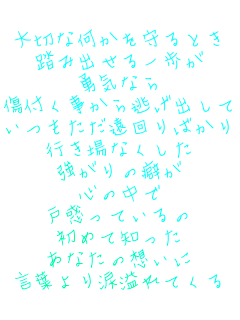 大切な何かを守るとき
踏み出せる一歩が
勇気なら
傷付く事から逃げ出して
いつもただ遠回りばかり
行き場なくした
強がりの癖が
心の中で
戸惑っているの
初めて知った
あなたの想いに
言葉より涙溢れてくる